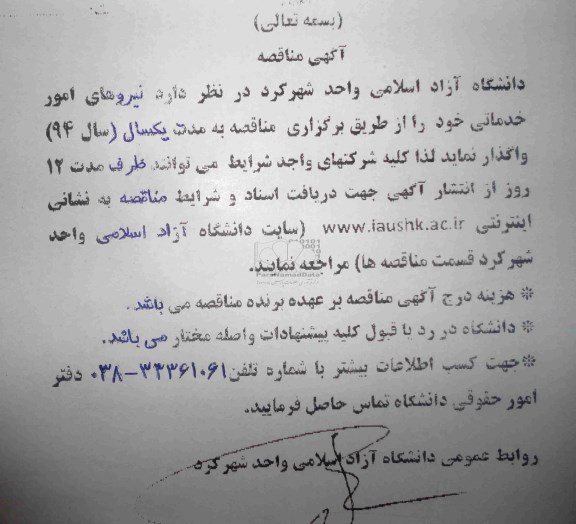 (بسمه تعالی)
آگهی مناقصه
دانشگاه آزاد اسلامی واحد شهرکرد در نظر دارد نیروهای امور
خدماتی خود را از طریق برگزاری مناقصه به مدت یکسال (سال ۹۴)
واگذار نماید لذا کلیه شرکتهای واجد شرایط می توانند ظرف مدت ۱۲
روز از انتشار آگهی جهت دریافت اسناد و شرایط مناقصه به نشانی
اینترنتی www.iaushk.ac.ir (سایت دانشگاه آزاد اسلامی واحد
شهرکرد قسمت مناقصه ها) مراجعه نمایند.
* هزینه درج آگهی مناقصه بر عهده برنده مناقصه می باشد.
* دانشگاه در رد یا قبول کلیه پیشنهادات واصله مختار می باشد.
*جهت کسب اطلاعات بیشتر با شماره تلفن ۳۳۳۶۱۰۶۱-۰۳۸ دفتر
امور حقوقی دانشگاه تماس حاصل فرمایید.
روابط عمومی دانشگاه آزاد اسلامی واحد شهرکرد